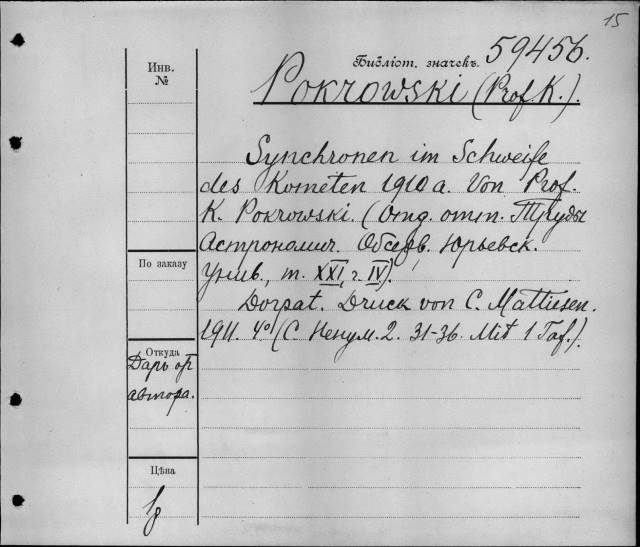 15
Библіот. значекъ. 59456.
Инв.
№
Pokrowski (Prof. K.).
Synchronen im Schweife
des Kometen 1910a. Von Prof.
K. Pokrowski. (Отд. отт. Труды
Астрономич. Обсерв. Юрьевск.
Унив., т. XXI, г. IV).
По заказу
Dorpat. Druck von C. Mattiesen.
1911. 4° (С. Ненум. 2. 31-36. Mit 1 Taf.).
Откуда
Даръ от
автора.
Цѣна